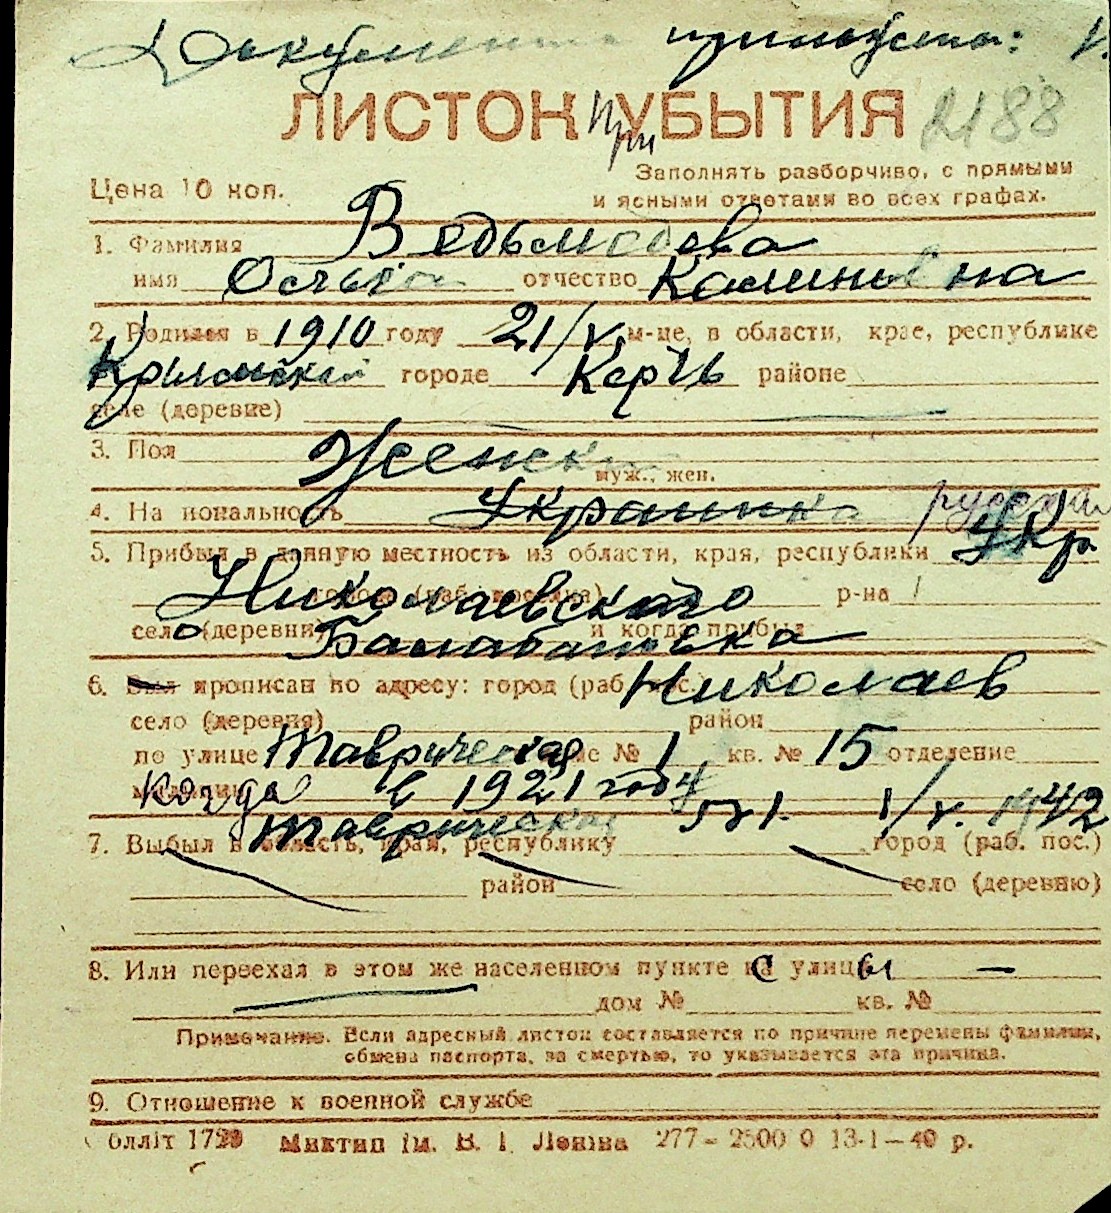 Документы
ЛИСТОК При УБЫТИЯ 2188
Заполнять разборчиво, с прямыми
Цена 10 коп. и ясными ответами во всех графах.
1. Фамилия
имя Ольга отчество Калиновна
2. Родился в 1910 году 21/V. м-це, в области, крае, республике
Крымской городе Керчь районе
селе (деревне)
3. Пол Женский
муж., жен.
4. Национальность Украинка русская
5. Прибыл в данную местность из области, края, республики Укр.
Николаевского города (раб. поселка) р-на
село (деревни) Балабановка и когда прибыл
6. Был прописан по адресу: город (раб. пос.) Николаев
село (деревня) район
по улице Таврическая № 1 кв. № 15 отделение
милиции когда в 1921 году
Таврическая 1/V. 1942
7. Выбыл в область, край, республику город (раб. пос.)
район село (деревню)
8. Или переехал в этом же населенном пункте с улицы –
дом № кв. №
Примечание. Если адресный листок составляется по причине перемены фамилии,
обмена паспорта, за смертью, то указывается эта причина.
9. Отношение к военной службе
Миктип ім. В. І. Леніна 277–2500 0 13-1–40 р.